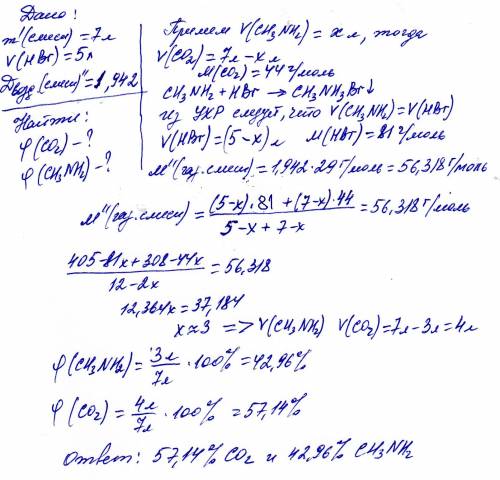 Дано:
m'(смеси) = 7л
V(HBr) = 5л
Dвозд.(смеси)" = 1,942
Найти:
φ(CO₂) - ?
φ(CH₃NH₂) - ?
Примем V(CH₃NH₂) = x л, тогда
V(CO₂) = 7л - x л
M(CO₂) = 44 г/моль
CH₃NH₂ + HBr → CH₃NH₃Br↓
из УХР следует, что V(CH₃NH₂) = V(HBr)
V(HBr) = (5-x) л M(HBr) = 81 г/моль
M"(газ. смеси) = 1,942·29 г/моль = 56,318 г/моль
M"(газ. смеси) = ((5-x)·81 + (7-x)·44)/(5-x+7-x) = 56,318 г/моль
(405-81x+308-44x)/(12-2x) = 56,318
12,364x = 37,184
x ≈ 3 => V(CH₃NH₂) V(CO₂) = 7л - 3л = 4л
φ(CH₃NH₂) = 3л/7л · 100% = 42,96%
φ(CO₂) = 4л/7л · 100% = 57,14%
Ответ: 57,14% CO₂ и 42,96% CH₃NH₂